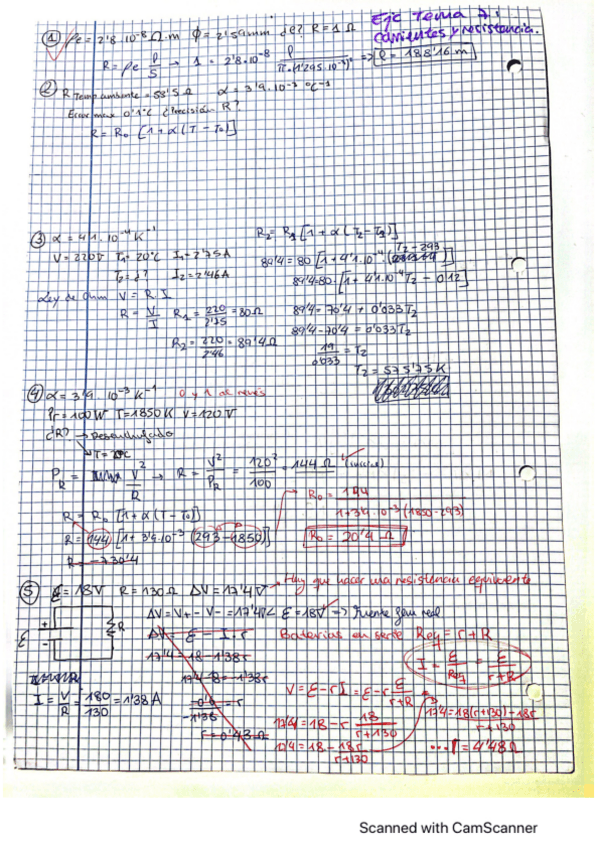 Ejc Tema 7:
corrientes y resistencia.
① ρe = 2'8·10⁻⁸ Ω·m ϕ = 2'59mm ¿ℓ? R = 1 Ω
R = ρe ℓ/S → 1 = 2'8·10⁻⁸ ℓ/(π·(1'295·10⁻³)²) ⇒ ℓ = 188'16 m
② R Temp ambiente = 58'5 Ω α = 3'9·10⁻³ °C⁻¹
Error max 0'1°C ¿Precisión R?
R = R₀ [1 + α(T - T₀)]
③ α = 4'1·10⁻⁴ K⁻¹
V = 220V T₁ = 20°C I₁ = 2'75A
T₂ = ¿? I₂ = 2'46A
Ley de Ohm V = R·I
R = V/I R₁ = 220/2'75 = 80Ω
R₂ = 220/2'46 = 89'4Ω
R₂ = R₁ [1 + α(T₂ - T₁)]
T₂ - 293
89'4 = 80 [1 + 4'1·10⁻⁴ ( )]
89'4 = 80·[1 + 4'1·10⁻⁴ T₂ - 0'12]
89'4 = 70'4 + 0'033T₂
89'4 - 70'4 = 0'033T₂
19/0'033 = T₂
T₂ = 575'75K
④ α = 3'9·10⁻³ K⁻¹ 0 y 1 al revés
Pr = 100W T = 1850K V = 120V
¿R? → Desenchufado
T = 20°C
P_R = V²/R → R = V²/P_R = 120²/100 = 144 Ω
R = R₀ [1 + α(T - T₀)]
R = 144 [1 + 3'9·10⁻³ (293 - 1850)]
R = -730'4
R₀ = 144/(1 + 3'9·10⁻³ (1850 - 293))
R₀ = 20'4 Ω
⑤ ℰ = 18V R = 130Ω ΔV = 17'4V → Hay que hacer una resistencia equivalente
ΔV = V₊ - V₋ = 17'4V < ℰ = 18V ⇒ Fuente fem real
+ - ℰ R
ΔV ℰ - I·r
17'4 = 18 - 1'38r
17'4 - 18 = -1'38r
-0'6/-1'38 = r
r = 0'43 Ω
I = V/R = 180/130 = 1'38 A
Baterías en serie Req = r + R
I = ℰ/Req = ℰ/(r+R)
V = ℰ - rI = ℰ - r ℰ/(r+R)
17'4 = 18 - r 18/(r+130)
17'4 = 18 - 18r/(r+130)
17'4 = (18(r+130) - 18r)/(r+130)
...r = 4'48Ω
Scanned with CamScanner